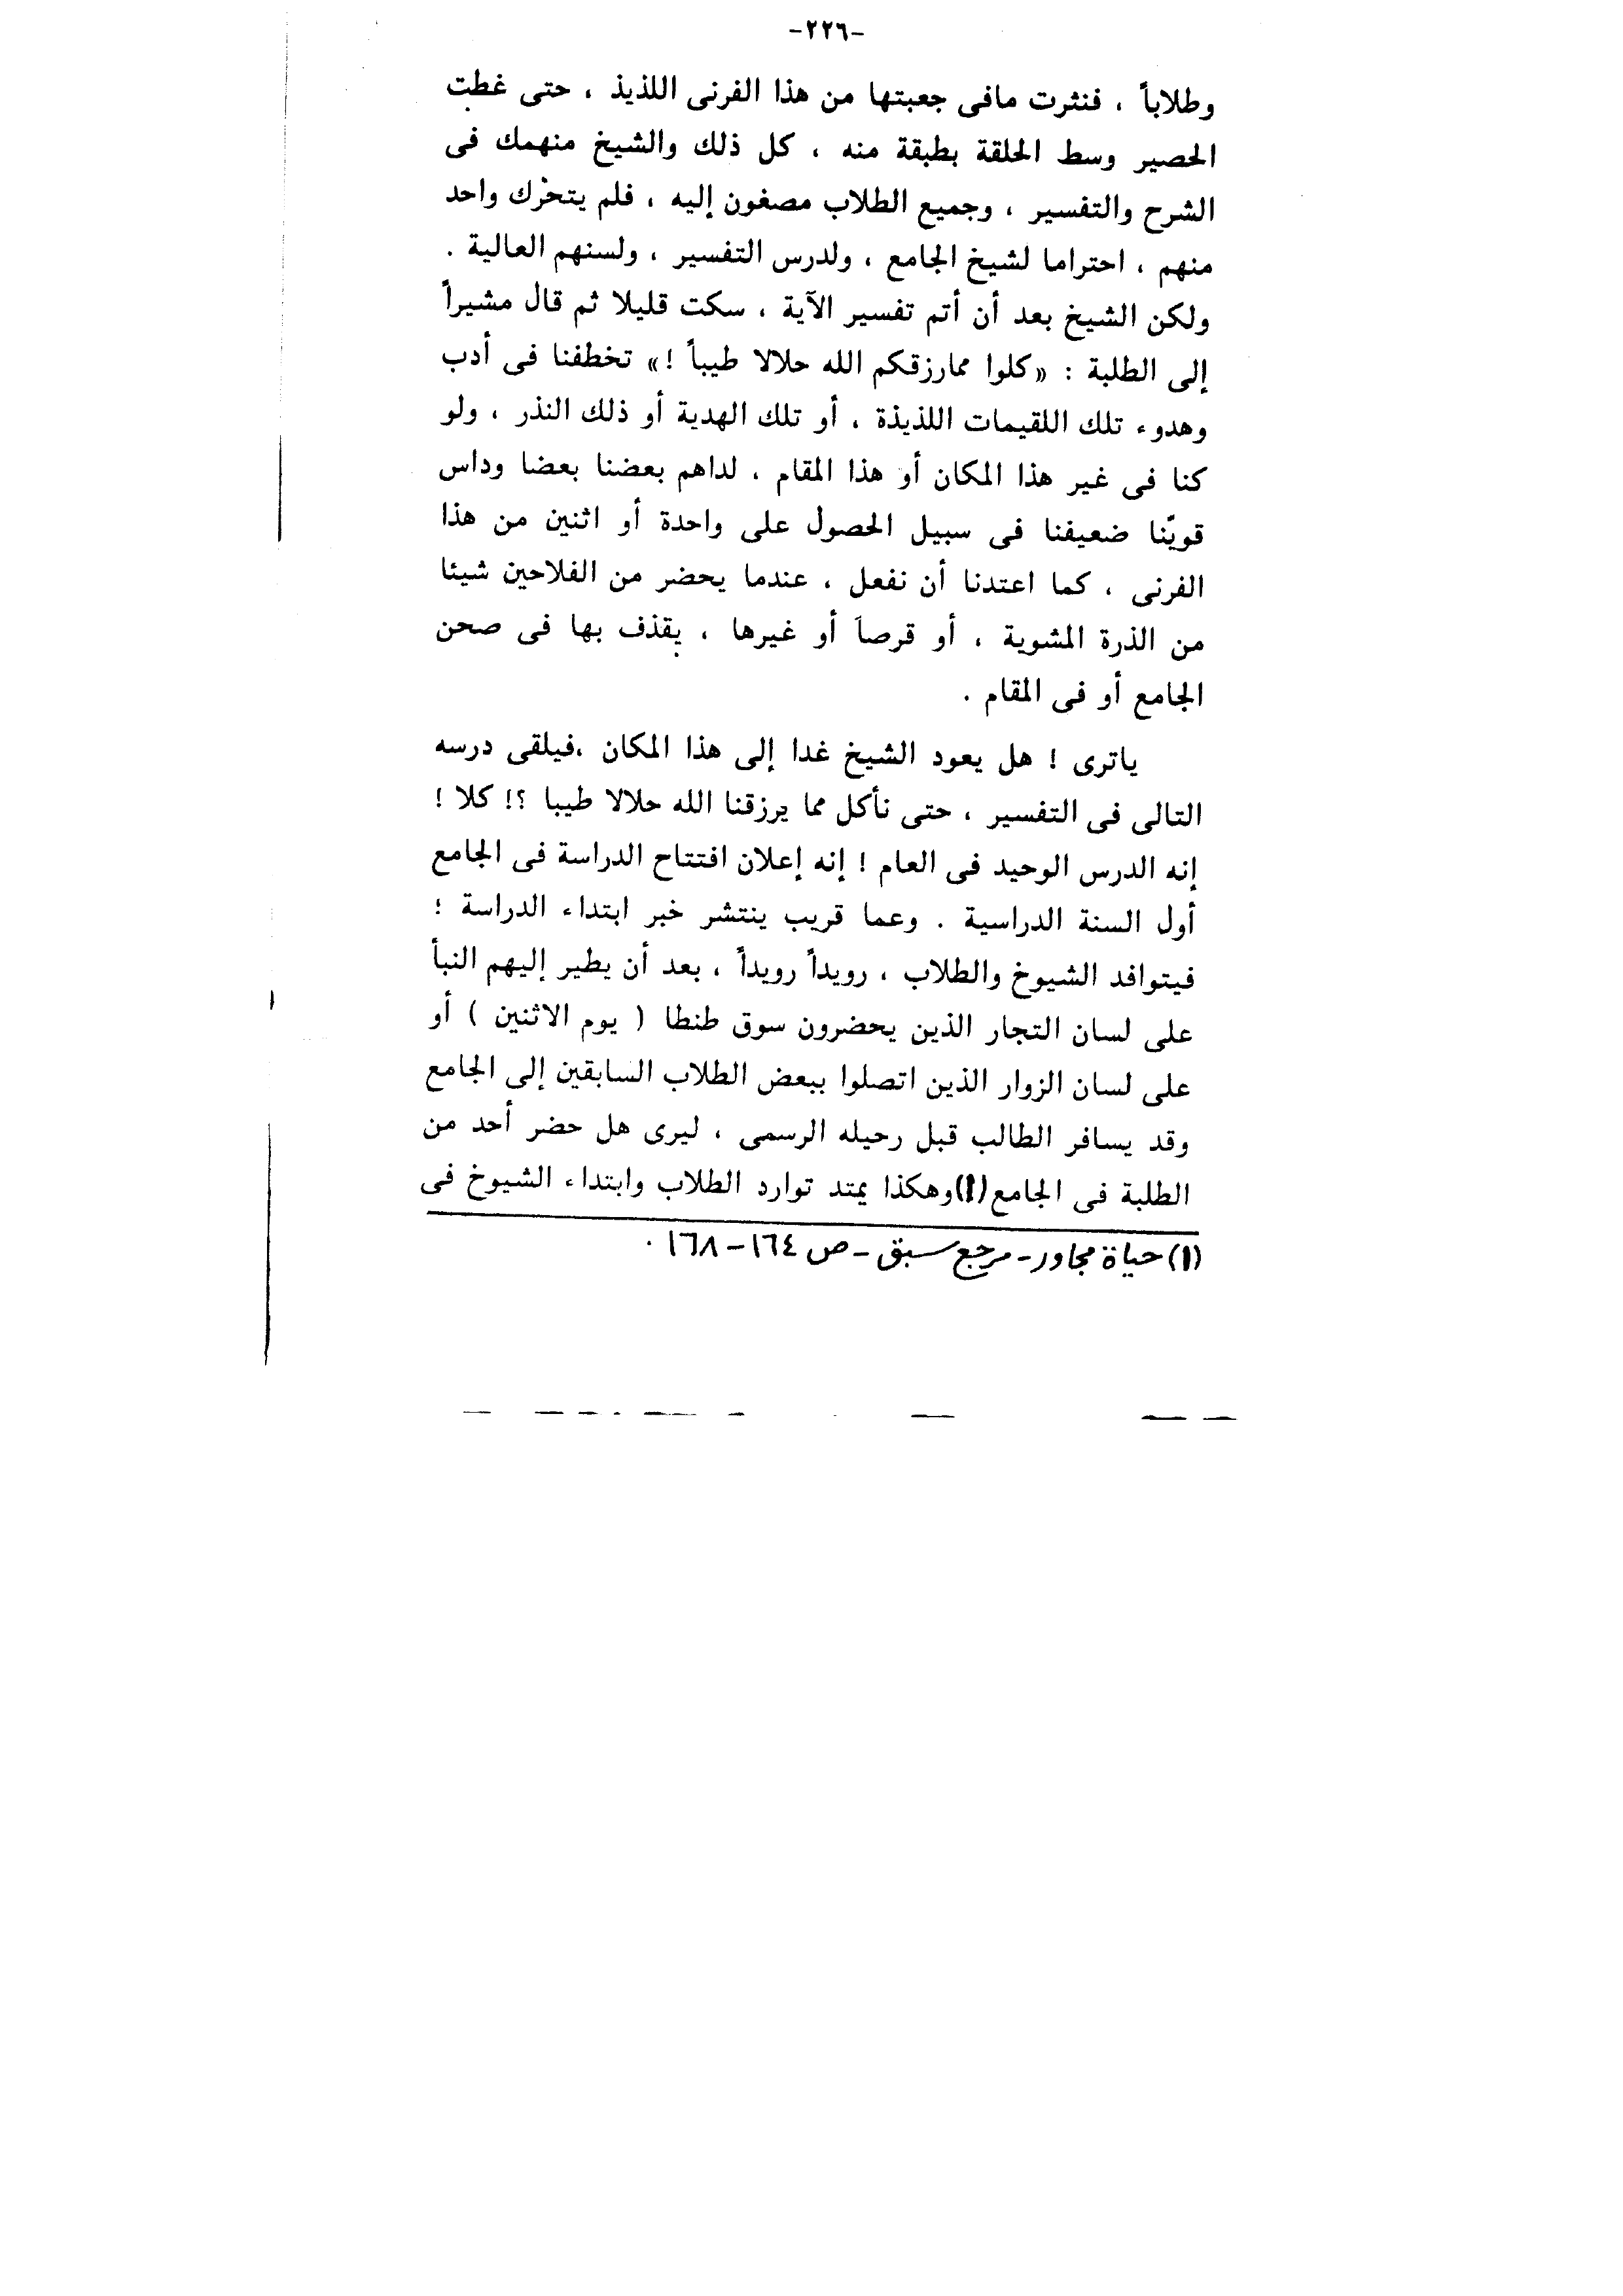 -٢٢٦-
وطلاباً ، فنثرت مافى جعبتها من هذا الفرنى اللذيذ ، حتى غطت
الحصير وسط الحلقة بطبقة منه ، كل ذلك والشيخ منهمك فى
الشرح والتفسير ، وجميع الطلاب مصغون إليه ، فلم يتحرك واحد
منهم ، احتراما لشيخ الجامع ، ولدرس التفسير ، ولسنهم العالية .
ولكن الشيخ بعد أن أتم تفسير الآية ، سكت قليلا ثم قال مشيراً
إلى الطلبة : «كلوا ممارزقكم الله حلالا طيباً !» تخطفنا فى أدب
وهدوء تلك اللقيمات اللذيذة ، أو تلك الهدية أو ذلك النذر ، ولو
كنا فى غير هذا المكان أو هذا المقام ، لداهم بعضنا بعضا وداس
قويّنا ضعيفنا فى سبيل الحصول على واحدة أو اثنين من هذا
الفرنى ، كما اعتدنا أن نفعل ، عندما يحضر من الفلاحين شيئا
من الذرة المشوية ، أو قرصاً أو غيرها ، يقذف بها فى صحن
الجامع أو فى المقام .
ياترى ! هل يعود الشيخ غدا إلى هذا المكان ،فيلقى درسه
التالى فى التفسير ، حتى نأكل مما يرزقنا الله حلالا طيبا ؟! كلا !
إنه الدرس الوحيد فى العام ! إنه إعلان افتتاح الدراسة فى الجامع
أول السنة الدراسية . وعما قريب ينتشر خبر ابتداء الدراسة ؛
فيتوافد الشيوخ والطلاب ، رويداً رويداً ، بعد أن يطير إليهم النبأ
على لسان التجار الذين يحضرون سوق طنطا ( يوم الاثنين ) أو
على لسان الزوار الذين اتصلوا ببعض الطلاب السابقين إلى الجامع
وقد يسافر الطالب قبل رحيله الرسمى ، ليرى هل حضر أحد من
الطلبة فى الجامع(١)وهكذا يمتد توارد الطلاب وابتداء الشيوخ فى
(١) حياة مجاور - مرجع سبق - ص ١٦٤ - ١٦٨ .